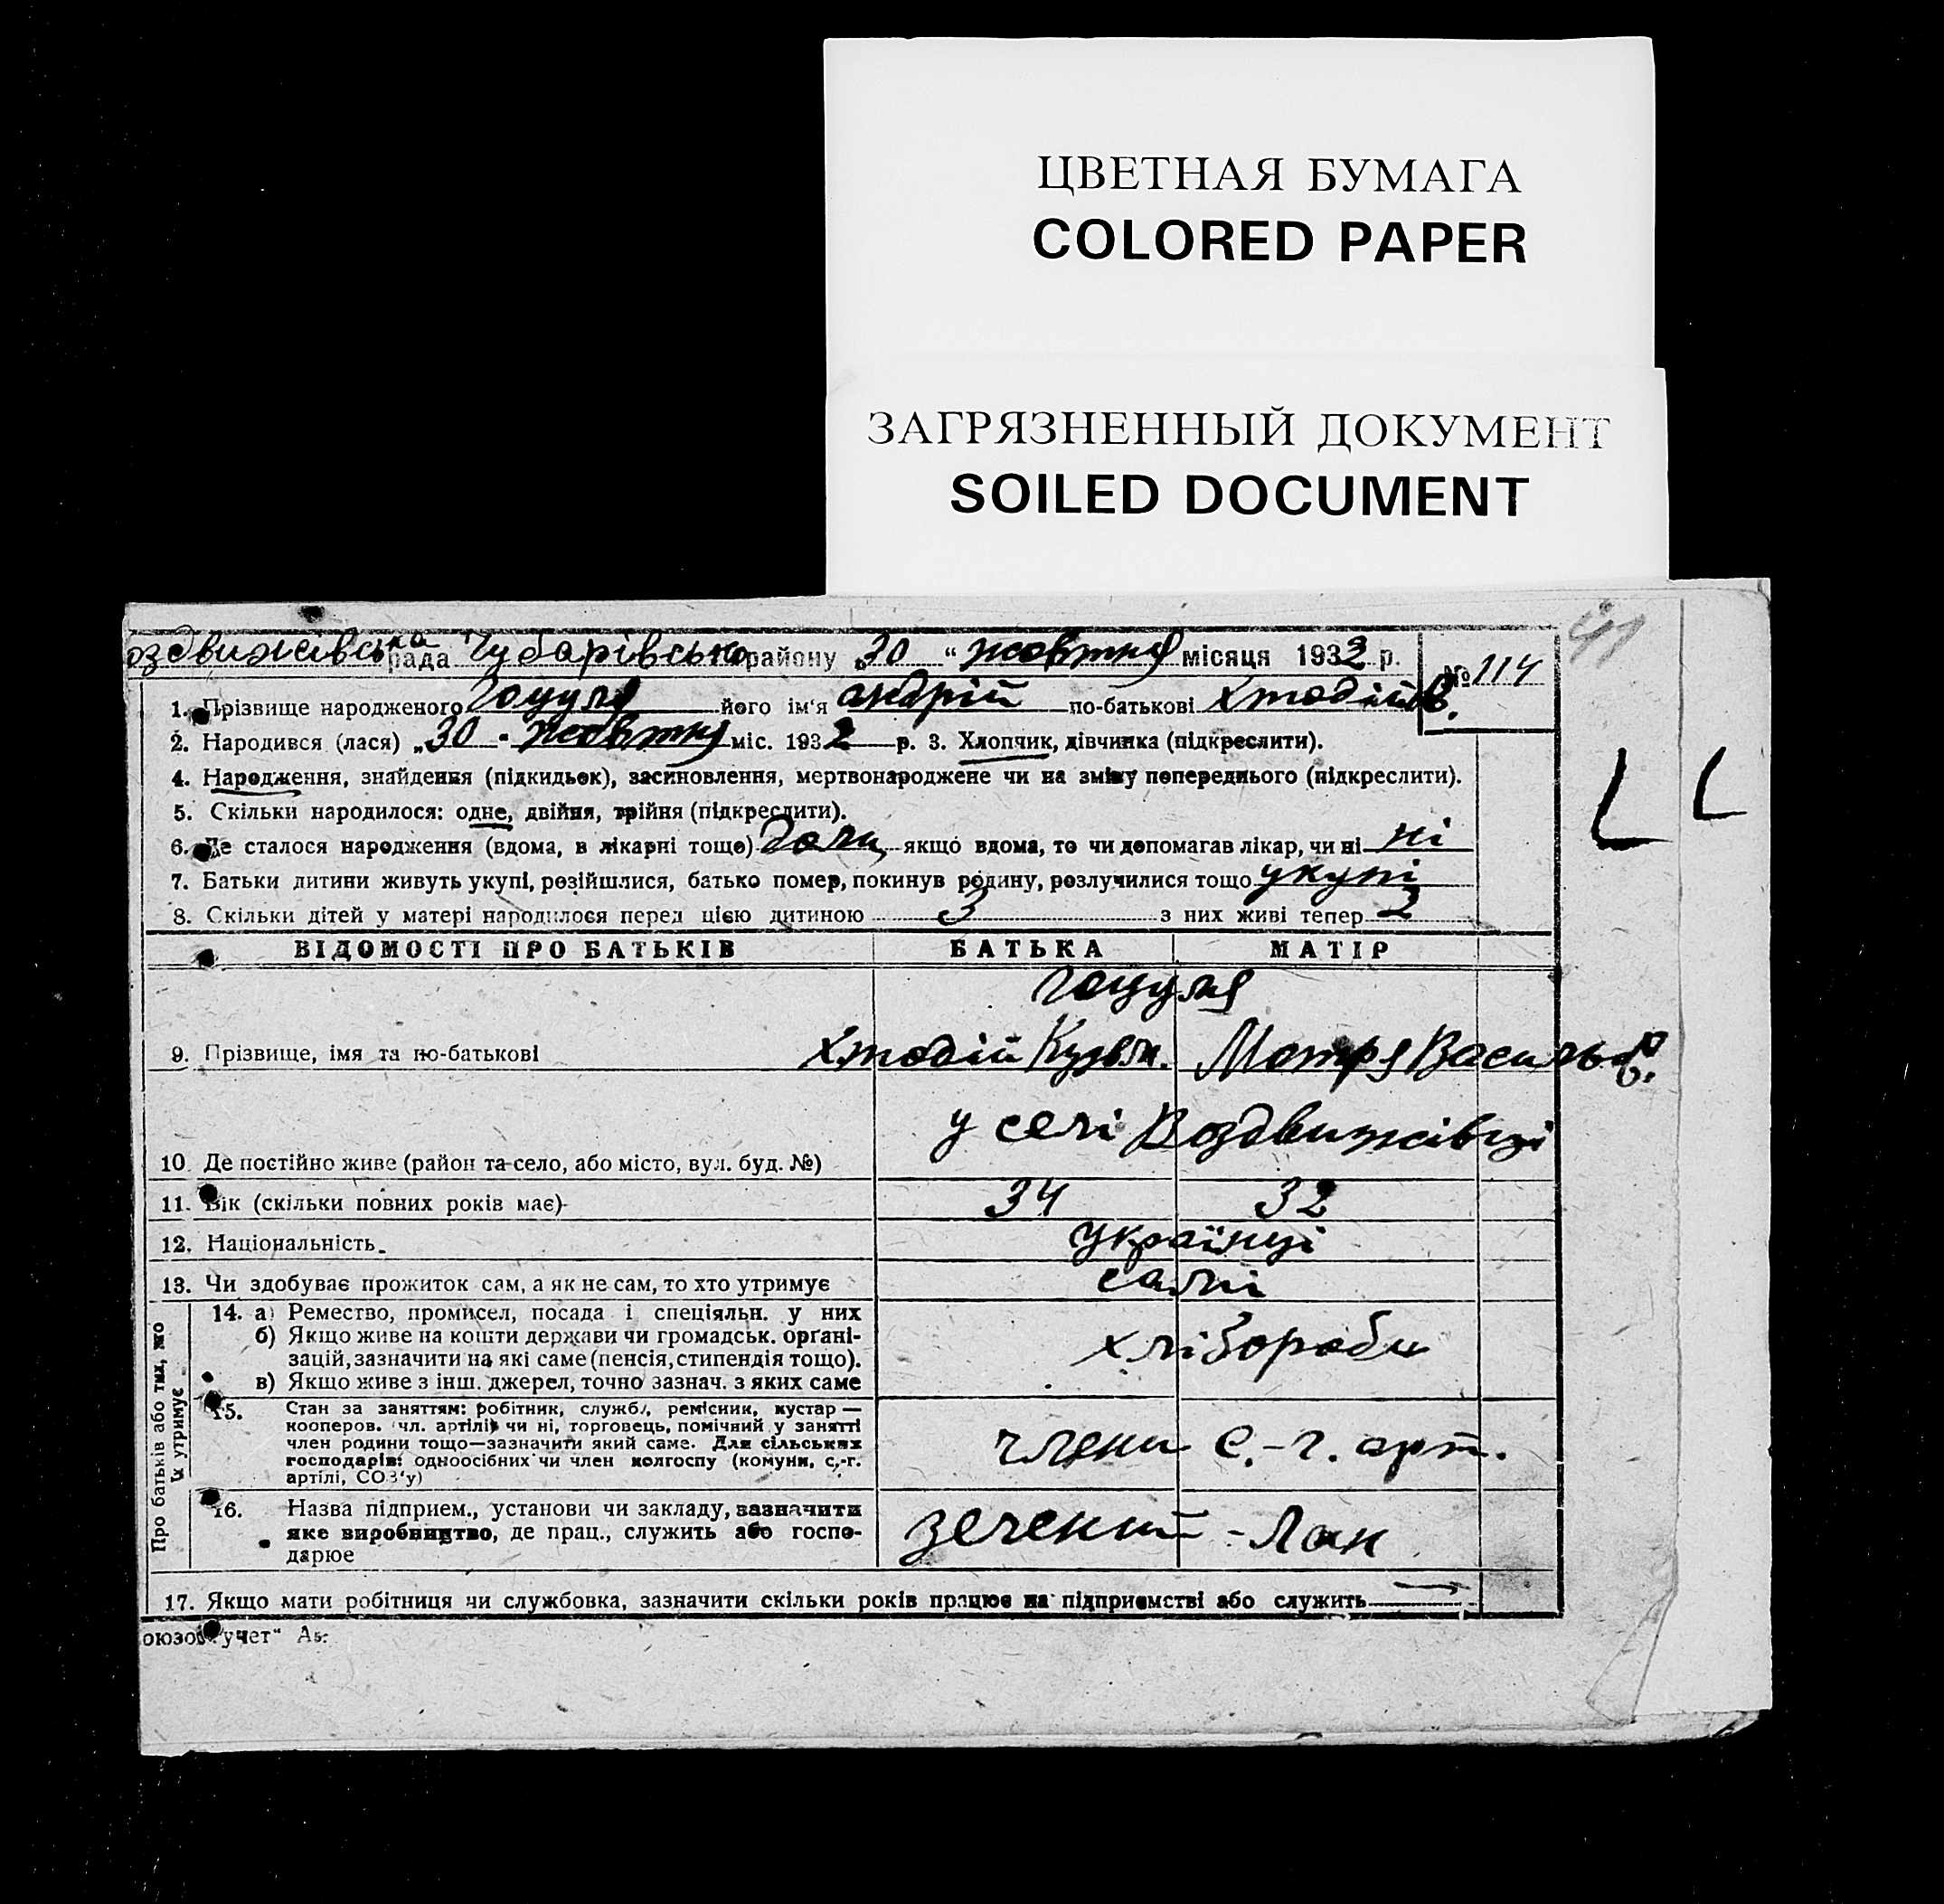 ЦВЕТНАЯ БУМАГА
COLORED PAPER
ЗАГРЯЗНЕННЫЙ ДОКУМЕНТ
SOILED DOCUMENT
41
оздвижівська рада Чубарівсько району „30 “ жовтня місяця 1932 р. № 114
1. Прізвище народженого Гоцуля його ім'я андрій по-батькові Хтодійов.
2. Народився (лася) „30 - жовтня міс. 1932 р. 3. Хлопчик, дівчинка (підкреслити).
4. Народження, знайдення (підкидьок), засиновлення, мертвонароджене чи на зміну попереднього (підкреслити).
5. Скільки народилося: одне, двійня, трійня (підкреслити).
6. Де сталося народження (вдома, в лікарні тощо) дома якщо вдома, то чи допомагав лікар, чи ні ні
7. Батьки дитини живуть укупі, розійшлися, батько помер, покинув родину, розлучилися тощо укупі
8. Скільки дітей у матері народилося перед цією дитиною 3 з них живі тепер 2
ВІДОМОСТІ ПРО БАТЬКІВ БАТЬКА МАТІР
Гоцуля
9. Прізвище, імя та по-батькові Хтодій Кузьм. Мотря Васильов.
10. Де постійно живе (район та село, або місто, вул. буд. №) у селі Воздвижівці
11. Вік (скільки повних років має) 34 32
12. Національність українці
13. Чи здобуває прожиток сам, а як не сам, то хто утримує самі
Про батьків або тих, хто їх утримує
14. а) Ремество, промисел, посада і спеціяльн. у них
б) Якщо живе на кошти держави чи громадськ. органі-
зацій, зазначити на які саме (пенсія, стипендія тощо). хлібороби
в) Якщо живе з інш. джерел, точно зазнач. з яких саме
15. Стан за заняттям: робітник, служб., ремісник, кустар —
кооперов. чл. артілі чи ні, торговець, помічний у занятті
член родини тощо—зазначити який саме. Для сільських члени с.-г. арт.
господарів: одноосібних чи член колгоспу (комуни, с.-г.
артілі, СОЗ'у)
16. Назва підприєм., установи чи закладу, зазначити
яке виробництво, де прац., служить або госпо- зечений - Лан
дарює
17. Якщо мати робітниця чи службовка, зазначити скільки років працює на підприємстві або служить —
оюзоргучет"